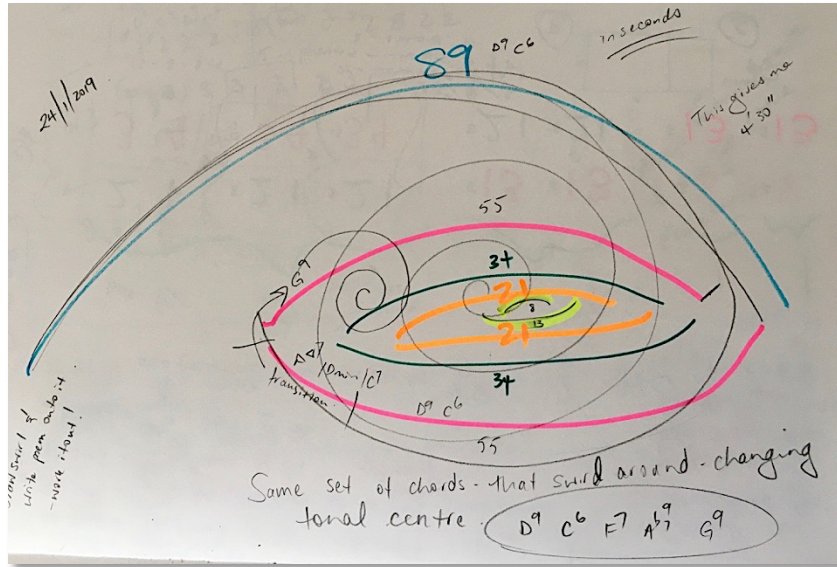 24/1/2019
89 D9 C6
in seconds
This gives me
4'30"
55
G9
34
21
8
13
21
34
A7/Dmin/C7
transition
D9 C6
55
swirl &
write poem onto it
- work it out!
Same set of chords - that swirl around - changing
tonal centre.
D9 C6 F7 Ab9 G9